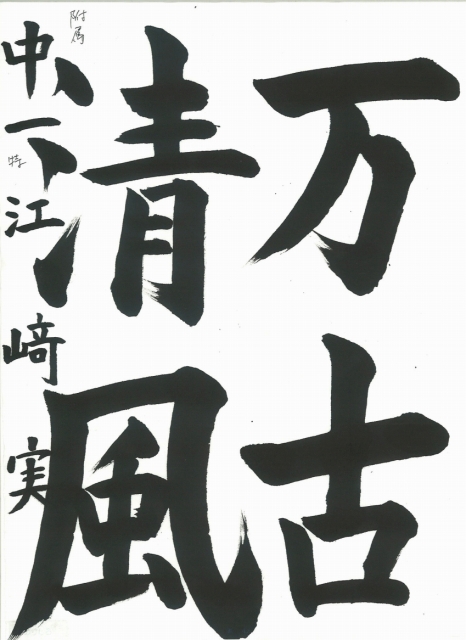 万古
清風
中一 江﨑実
附属
特